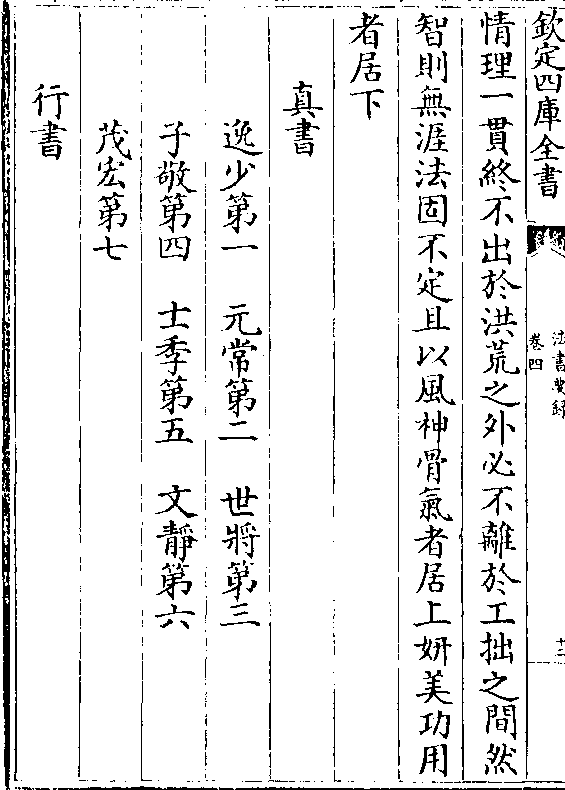 欽定四庫全書
法書要録
卷四
十二
情理一貫終不出於洪荒之外必不離於工拙之間然
智則無涯法固不定且以風神骨氣者居上妍美功用
者居下
真書
逸少第一 元常第二 世將第三
子敬第四 士季第五 文靜第六
茂宏第七
行書